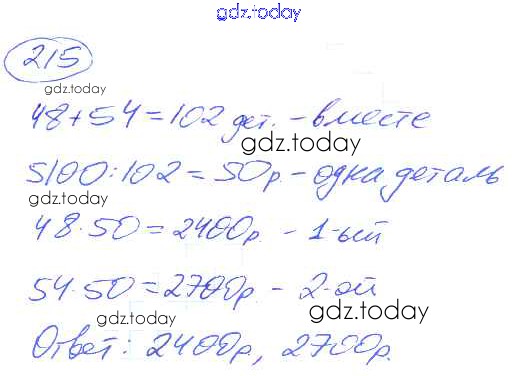 gdz.today
215
gdz.today
48+54=102 дет. - вместе
gdz.today
5100:102=50р. - одна деталь
gdz.today
48·50=2400р. - 1-ый
gdz.today
54·50=2700р - 2-ой
gdz.today
gdz.today
Ответ: 2400р, 2700р.